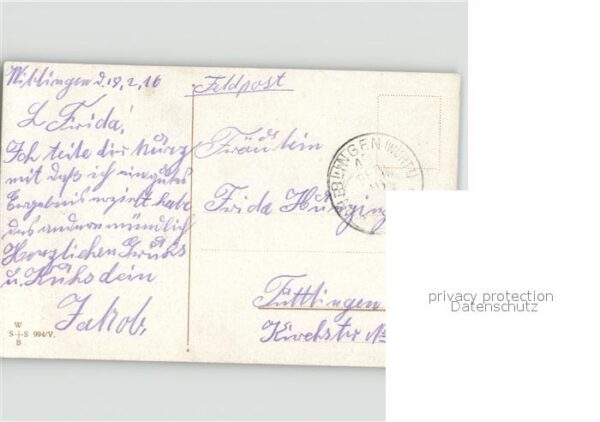 Wiblingen d. 19.2.16
L. Frida!
Ich teile dir kurz
mit daß ich ein gutes
Ergebnis erzielt habe
das andere mündlich
Herzlichen Gruß
u. Kuß dein
Jakob.
Feldpost
Fräulein
Frida
Tuttlingen
Kirchstr No
WIBLINGEN
W
S+S 994/V.
B
privacy protection
Datenschutz